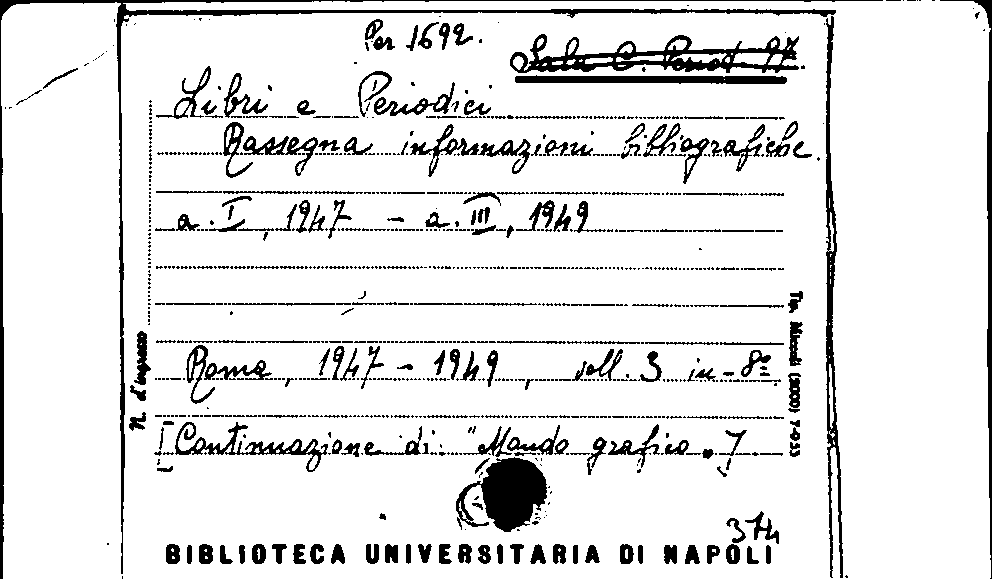 Per 1692.
Sala C. Period 97.
Libri e Periodici.
Rassegna informazioni bibliografiche.
a. I, 1947 - a. III, 1949
Roma, 1947 - 1949, voll. 3 in-8º
[Continuazione di: "Mondo grafico"]
374
BIBLIOTECA UNIVERSITARIA DI NAPOLI
N. d'ingresso
Tip. (5000) 7-953